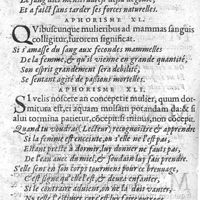 Et a falct sans tarder ses forces naturelles.
APHORISME XL.
Quibuscunque mulieribus ad mammas sanguis
colligitur, furorem significat.
Si s'amasse du sang aux fecondes mammelles
De la femme, & qu'il vienne en grande quantité,
Son esprit grandement sera debilité,
Se sentant agité de passions mortelles.
APHORISME XLI.
SI velis noscere an conceperit mulier, quum dor-
mitura est, ei aquam mulsam potandam da: & si
alui tormina patietur, concepit: si minus, non concepit.
Quand tu voudras (Lecteur) recognoistre & aprendre
Si la femme est enceinte, ou s'elle ne l'est pas,
Estant preste à dormir, luy donner ne faut pas
De l'eau avec du miel, & soudain luy fais prendre.
S'elle sent en son corps tourment pour le breuvage,
C'est signe qu'elle est, & deux enfantera,
Si au contraire, adonc on ne la doit vanter,